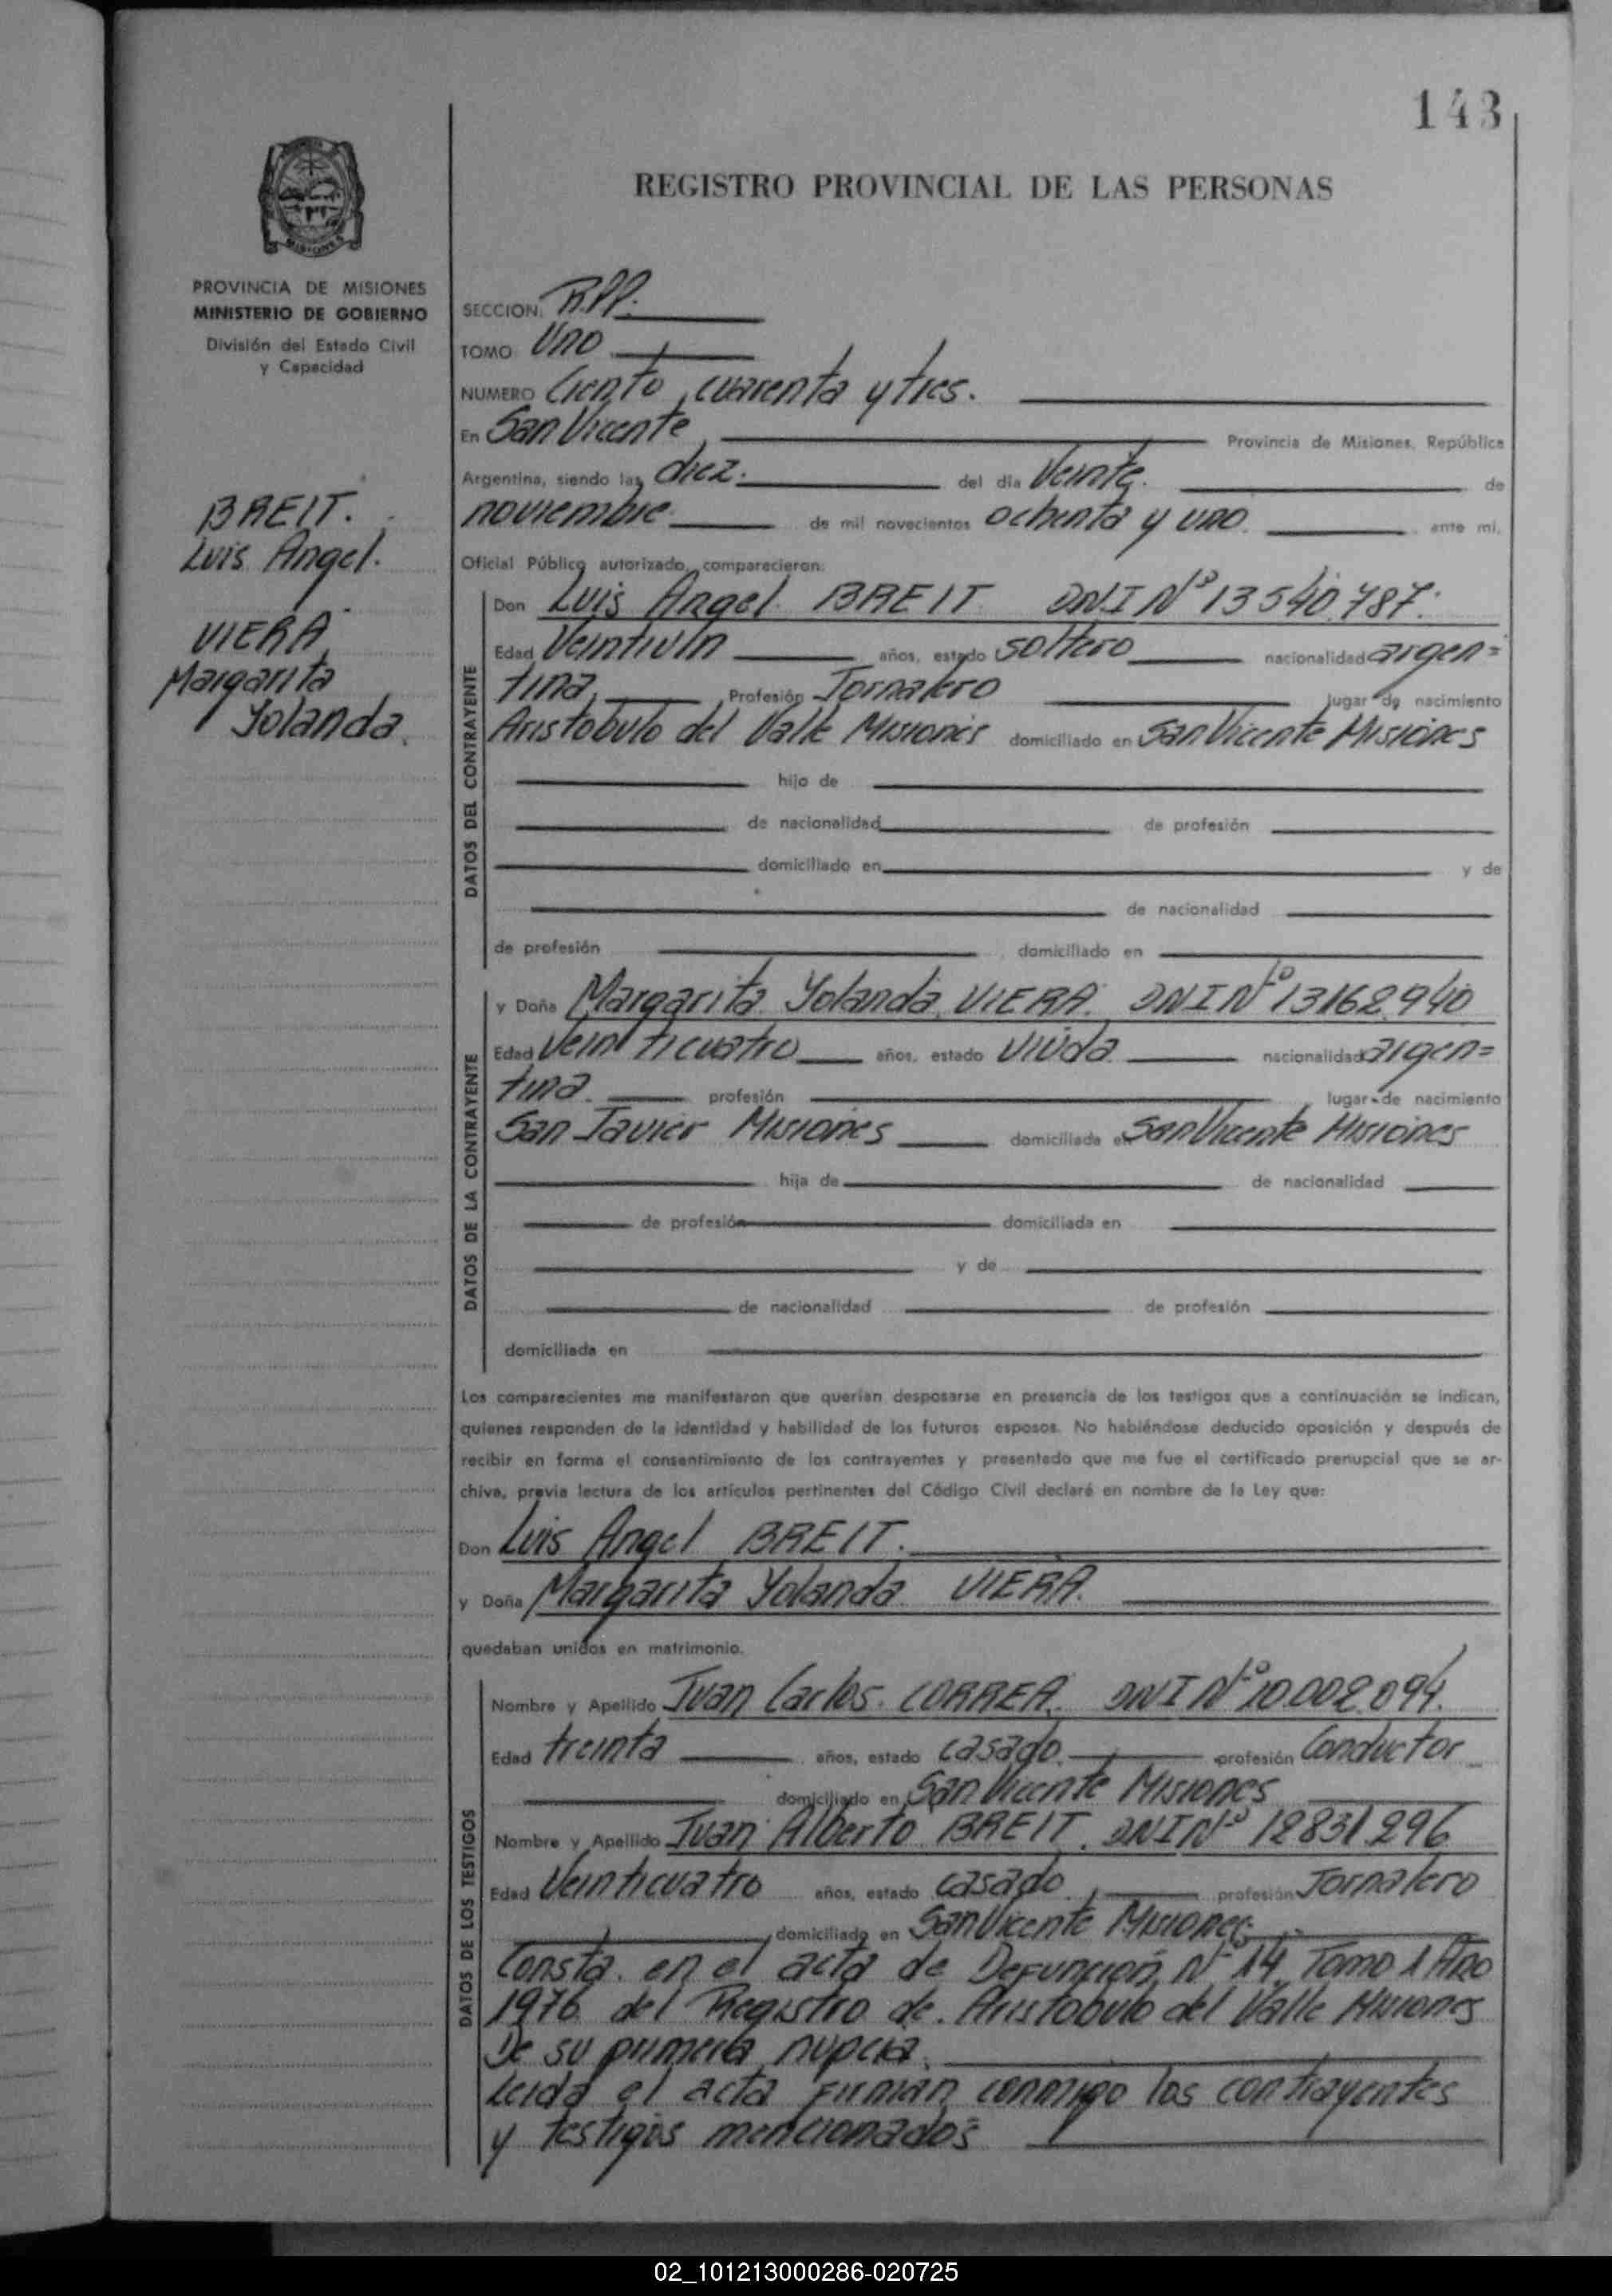 143
MISIONES
PROVINCIA DE MISIONES
MINISTERIO DE GOBIERNO
División del Estado Civil
y Capacidad
BREIT.
Luis Angel.
VIERA,
Margarita
Yolanda.
REGISTRO PROVINCIAL DE LAS PERSONAS
SECCION, R.P.P.
TOMO Uno
NUMERO Ciento cuarenta y tres.
En San Vicente, Provincia de Misiones, República
Argentina, siendo las diez. del día Veinte. de
noviembre de mil novecientos ochenta y uno. ante mi,
Oficial Público autorizado, comparecieron:
DATOS DEL CONTRAYENTE
Don Luis Angel BREIT DNI Nº 13540.787.
Edad Veintiun años, estado soltero nacionalidad argen=
tina, Profesión Jornalero lugar de nacimiento
Aristobulo del Valle Misiones domiciliado en San Vicente Misiones
hijo de
de nacionalidad de profesión
domiciliado en y de
de nacionalidad
de profesión domiciliado en
DATOS DE LA CONTRAYENTE
y Doña Margarita Yolanda VIERA. DNI Nº 13162940
Edad Veinticuatro años, estado Viuda nacionalidad argen=
tina. profesión lugar de nacimiento
San Javier Misiones domiciliada en San Vicente Misiones
hija de de nacionalidad
de profesión domiciliada en
y de
de nacionalidad de profesión
domiciliada en
Los comparecientes me manifestaron que querían desposarse en presencia de los testigos que a continuación se indican,
quienes responden de la identidad y habilidad de los futuros esposos. No habiéndose deducido oposición y después de
recibir en forma el consentimiento de los contrayentes y presentado que me fue el certificado prenupcial que se ar-
chiva, previa lectura de los artículos pertinentes del Código Civil declaré en nombre de la Ley que:
Don Luis Angel BREIT.
y Doña Margarita Yolanda VIERA.
quedaban unidos en matrimonio.
DATOS DE LOS TESTIGOS
Nombre y Apellido Juan Carlos CORREA. DNI Nº 10.002.094.
Edad treinta años, estado casado. profesión Conductor
domiciliado en San Vicente Misiones
Nombre y Apellido Juan Alberto BREIT. DNI Nº 12831.296
Edad Veinticuatro años, estado casado. profesión Jornalero
domiciliado en San Vicente Misiones
Consta en el acta de Defunción Nº 14 Tomo 1 Año
1976 del Registro de Aristobulo del Valle Misiones
De su primera nupcia.
Leida el acta firman conmigo los contrayentes
y testigos mencionados
02_101213000286-020725